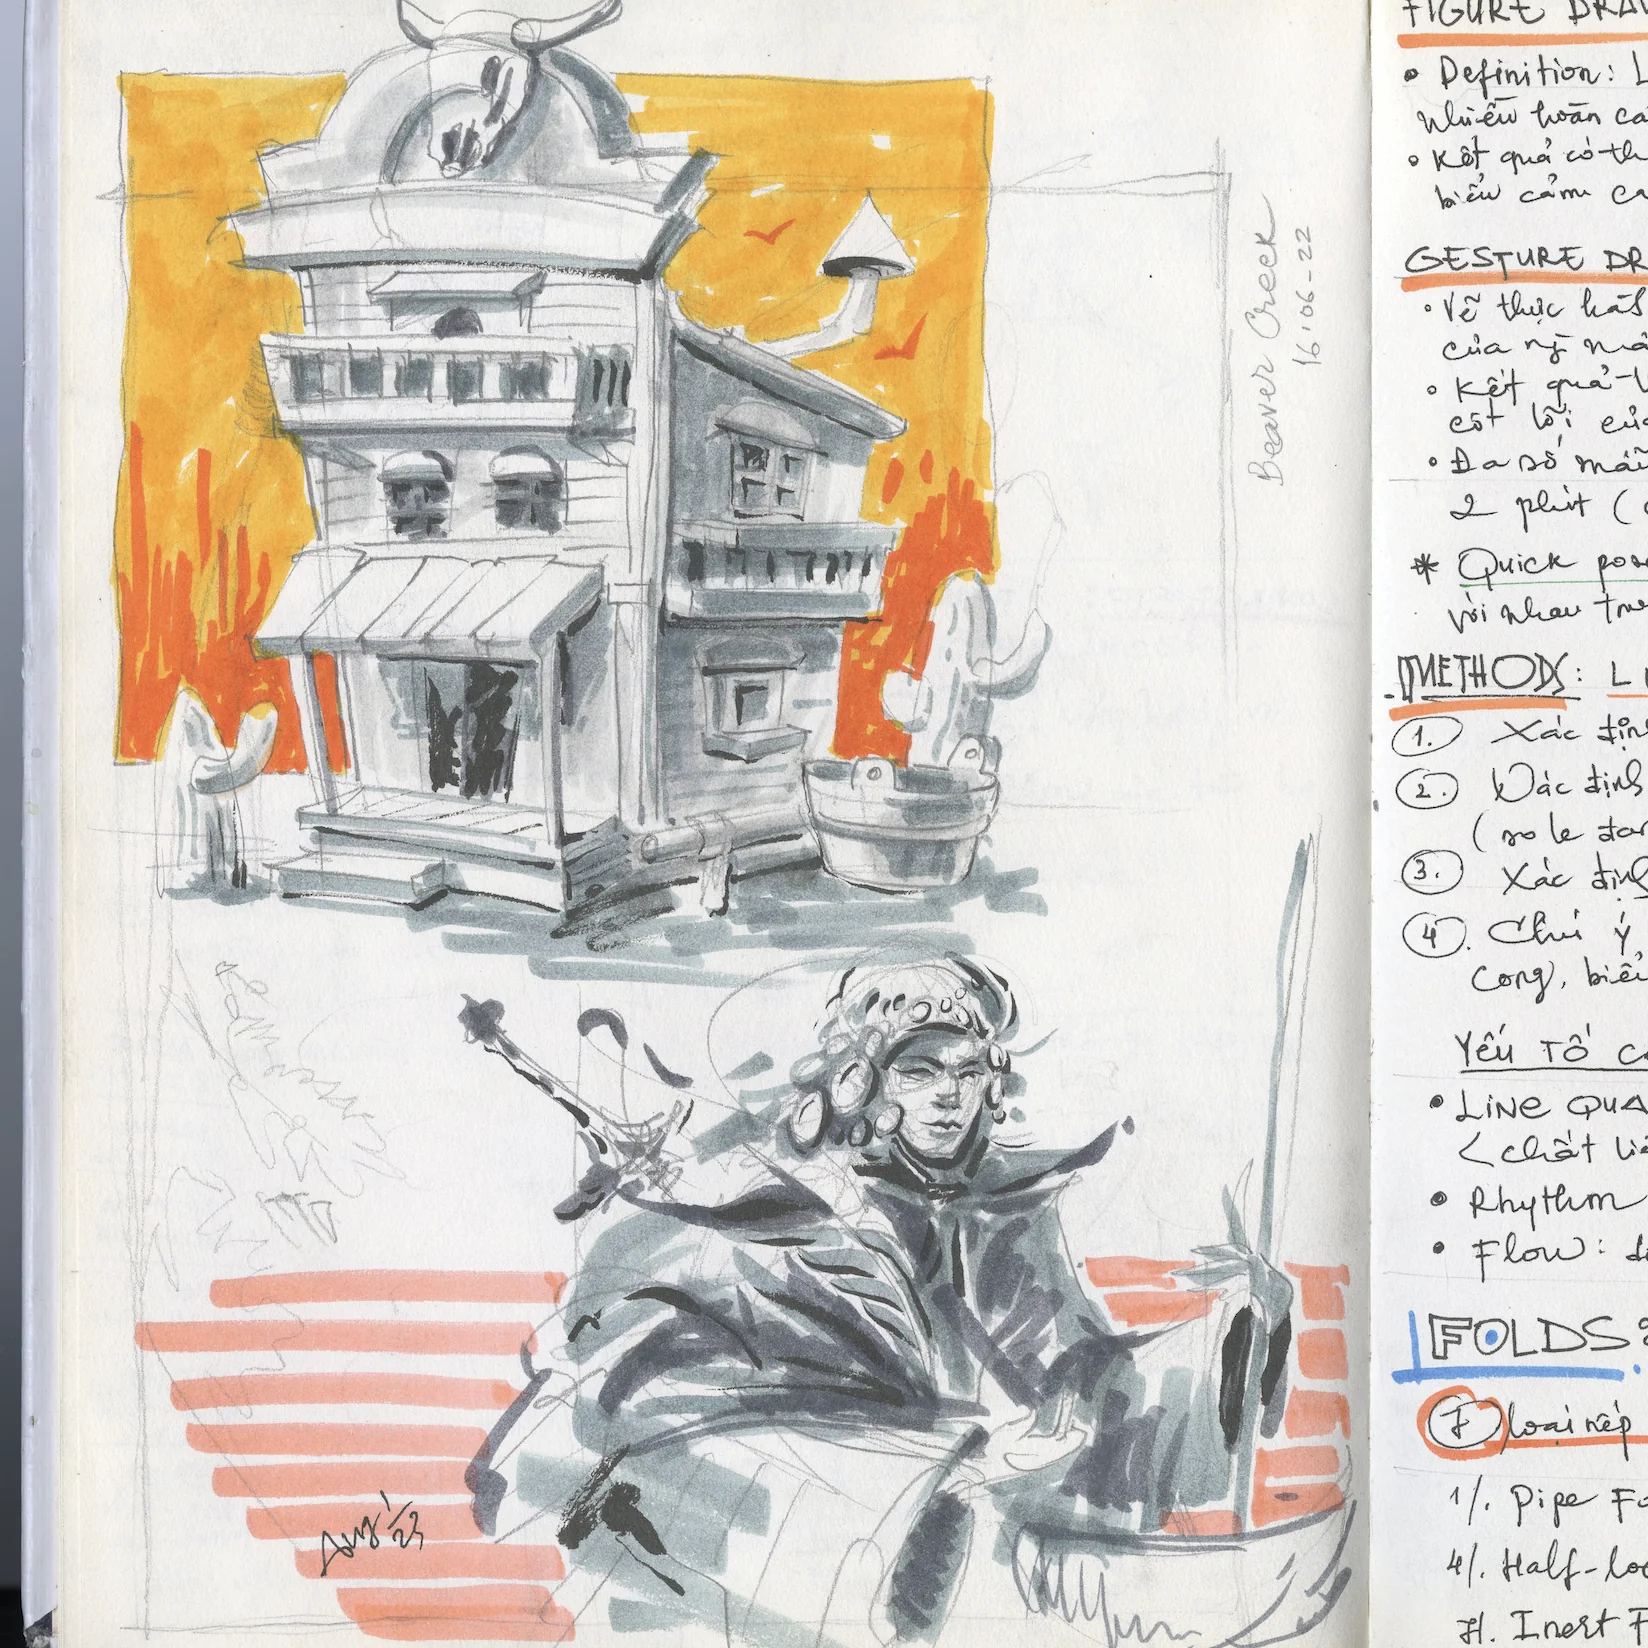 Beaver Creek
16-06-22
Aug '23
FIGURE DRAW
• Definition: L
nhiều hoàn cả
• Kết quả có th
biểu cảm ca
GESTURE DR
• Vẽ thực hiện
của
• Kết quả
cốt lõi của
• Đa số mẫu
2 phút (
* Quick pose
với nhau
METHODS: L
1. Xác định
2. Xác định
(so le
3. Xác định
4. Chú ý
cong, biểu
YẾU TỐ C
• LINE QUA
< chất li
• Rhythm
• Flow:
FOLDS:
7 loại nếp
1/. Pipe Fo
4/. Half-lo
7/. Inert F